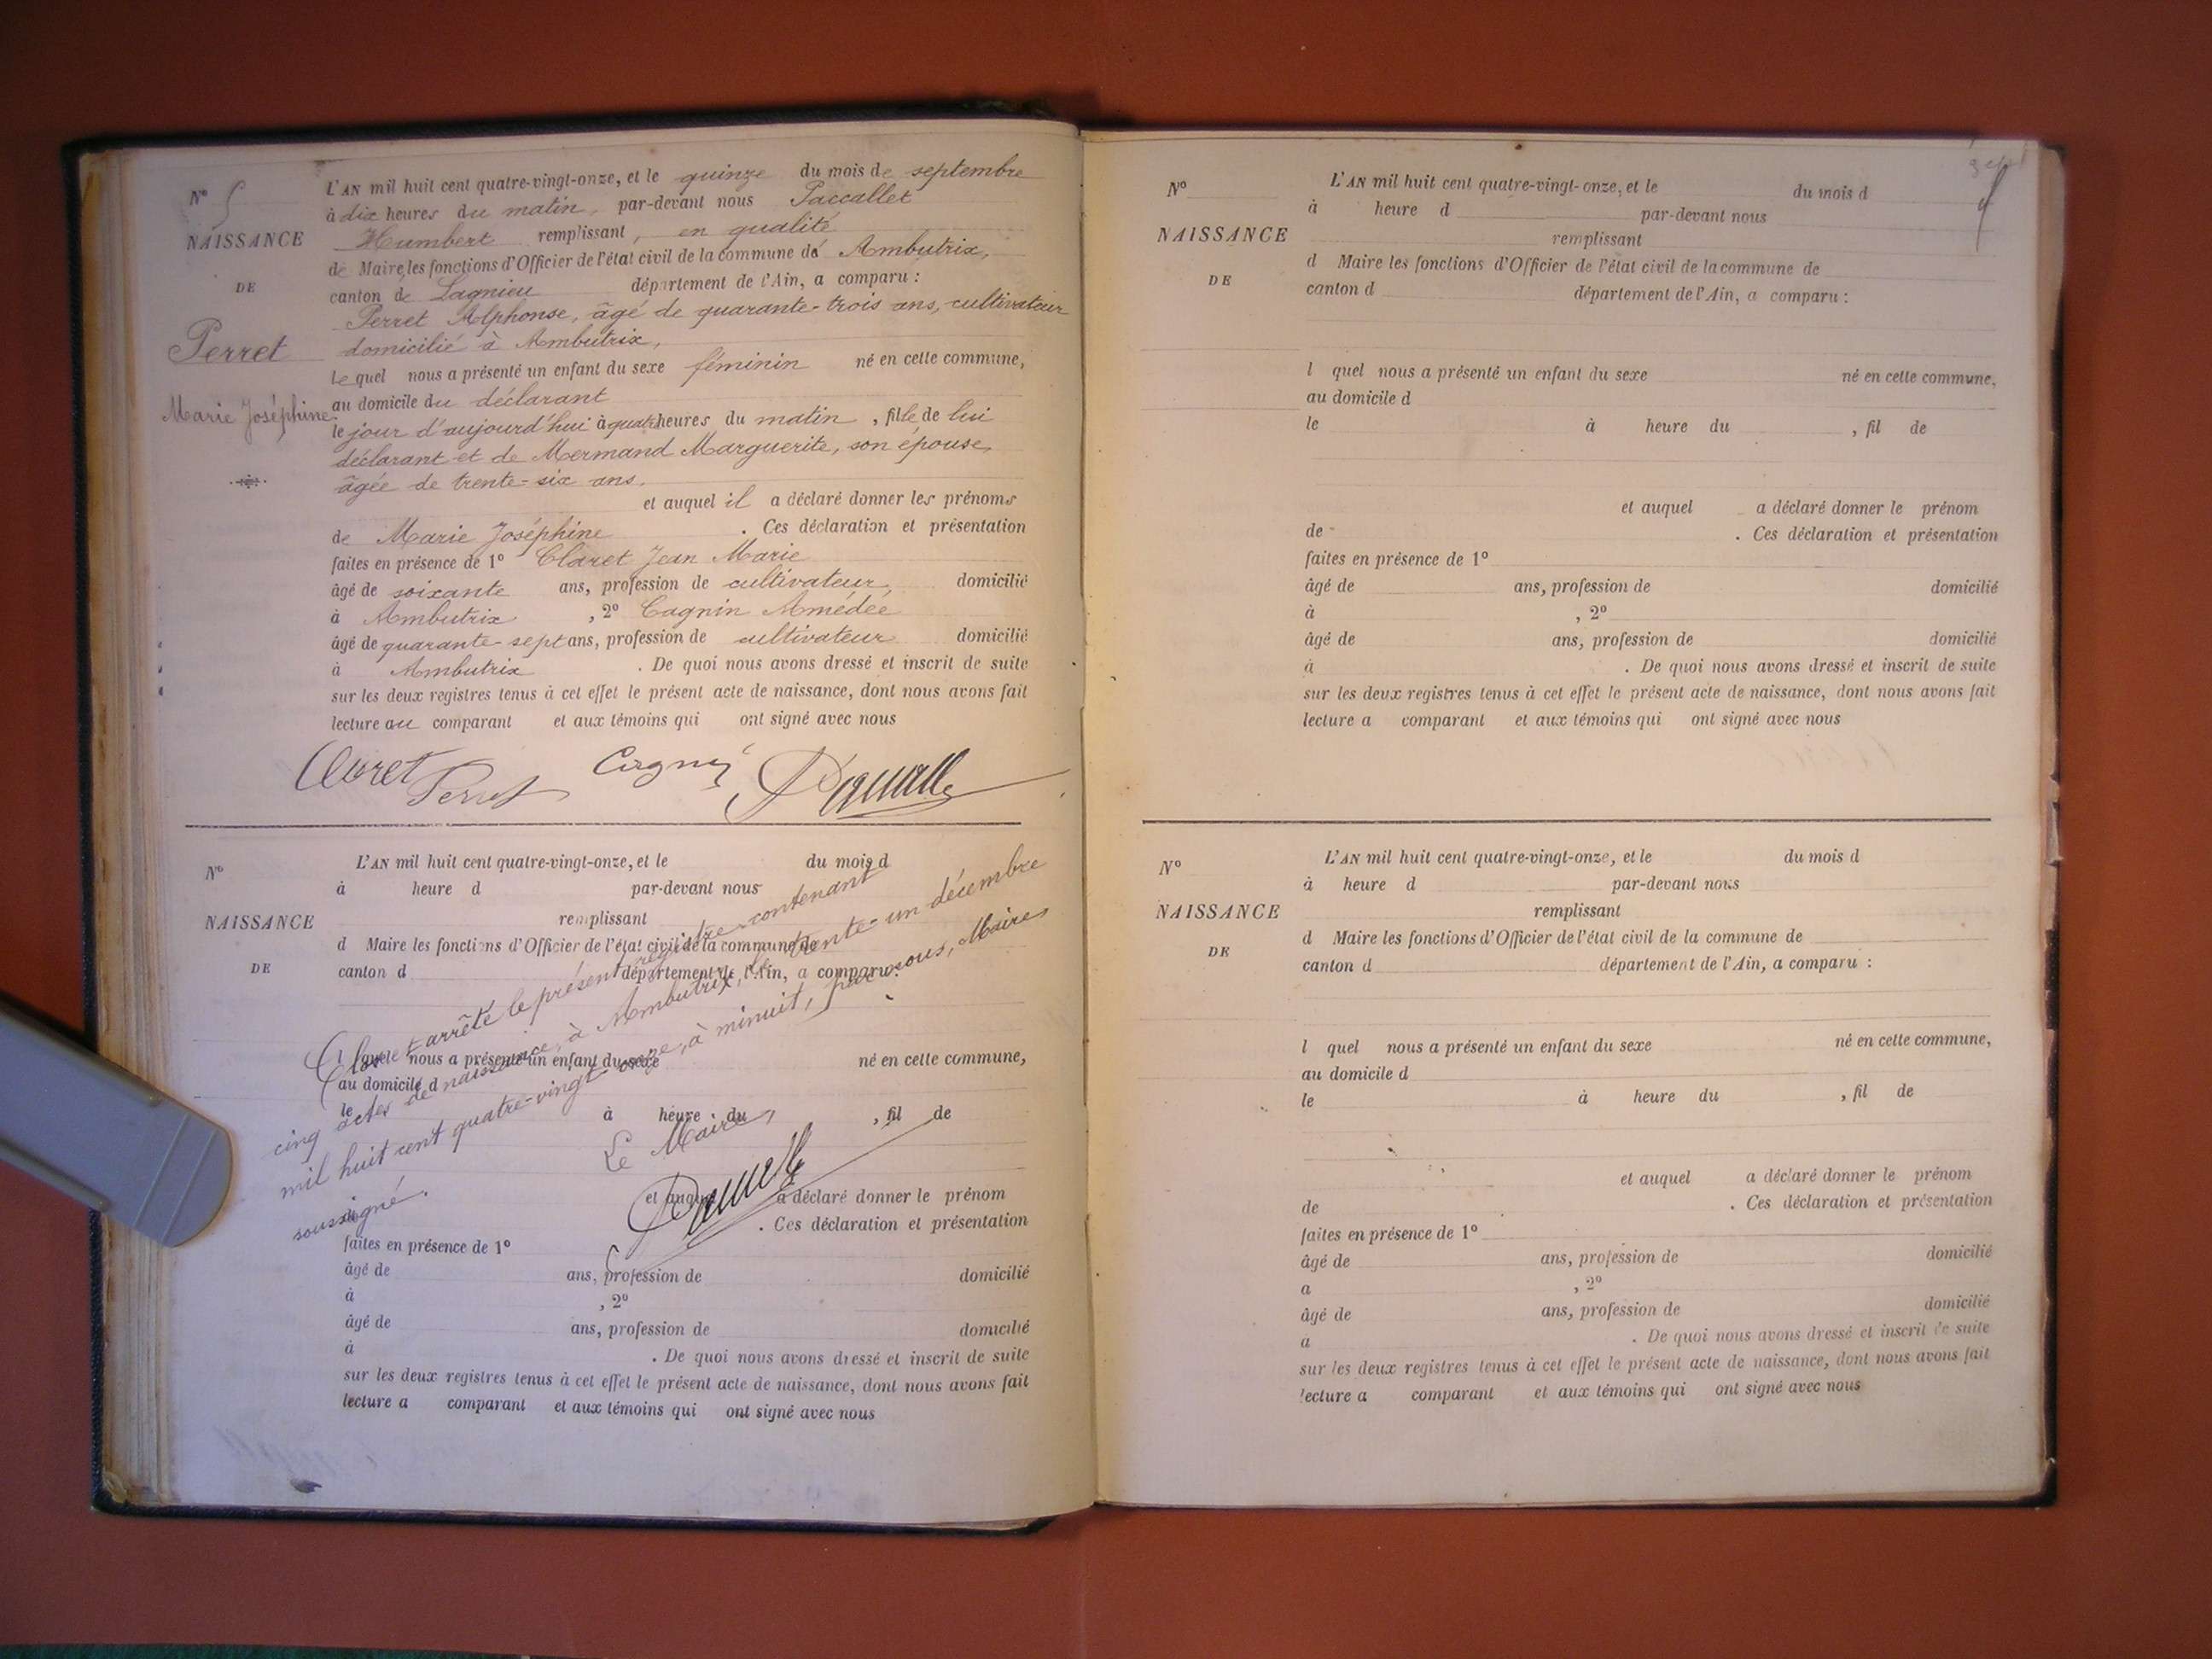 N° 5
NAISSANCE
DE
Perret
Marie Joséphine
L'AN mil huit cent quatre-vingt-onze, et le quinze du mois de septembre
à dix heures du matin, par-devant nous Paccallet
Humbert remplissant, en qualité
de Maire, les fonctions d'Officier de l'état civil de la commune de Ambutrix,
canton de Lagnieu département de l'Ain, a comparu :
Perret Alphonse, âgé de quarante-trois ans, cultivateur
domicilié à Ambutrix,
lequel nous a présenté un enfant du sexe féminin né en cette commune,
au domicile du déclarant
le jour d'aujourd'hui à quatre heures du matin, fille de lui
déclarant et de Mermand Marguerite, son épouse,
âgée de trente-six ans.
et auquel il a déclaré donner les prénoms
de Marie Joséphine . Ces déclaration et présentation
faites en présence de 1° Claret Jean Marie
âgé de soixante ans, profession de cultivateur, domicilié
à Ambutrix , 2° Cagnin Amédée
âgé de quarante-sept ans, profession de cultivateur domicilié
à Ambutrix . De quoi nous avons dressé et inscrit de suite
sur les deux registres tenus à cet effet le présent acte de naissance, dont nous avons fait
lecture au comparant et aux témoins qui ont signé avec nous
Claret Perret Cagnin
N°
NAISSANCE
DE
L'AN mil huit cent quatre-vingt-onze, et le du mois d
à heure d par-devant nous
remplissant
d Maire les fonctions d'Officier de l'état civil de la commune de
canton d département de l'Ain, a comparu :
l quel nous a présenté un enfant du sexe né en cette commune,
au domicile d
le à heure du , fil de
et auquel a déclaré donner le prénom
de . Ces déclaration et présentation
faites en présence de 1°
âgé de ans, profession de domicilié
à , 2°
âgé de ans, profession de domicilié
à . De quoi nous avons dressé et inscrit de suite
sur les deux registres tenus à cet effet le présent acte de naissance, dont nous avons fait
lecture a comparant et aux témoins qui ont signé avec nous
Clos et arrêté le présent registre contenant
cinq actes de naissance, à Ambutrix, le trente-un décembre
mil huit cent quatre-vingt-onze, à minuit, par nous, Maire
soussigné.
Le Maire,
N°
NAISSANCE
DE
L'AN mil huit cent quatre-vingt-onze, et le du mois d
à heure d par-devant nous
remplissant
d Maire les fonctions d'Officier de l'état civil de la commune de
canton d département de l'Ain, a comparu :
l quel nous a présenté un enfant du sexe né en cette commune,
au domicile d
le à heure du , fil de
et auquel a déclaré donner le prénom
de . Ces déclaration et présentation
faites en présence de 1°
âgé de ans, profession de domicilié
à , 2°
âgé de ans, profession de domicilié
à . De quoi nous avons dressé et inscrit de suite
sur les deux registres tenus à cet effet le présent acte de naissance, dont nous avons fait
lecture a comparant et aux témoins qui ont signé avec nous
N°
NAISSANCE
DE
L'AN mil huit cent quatre-vingt-onze, et le du mois d
à heure d par-devant nous
remplissant
d Maire les fonctions d'Officier de l'état civil de la commune de
canton d département de l'Ain, a comparu :
l quel nous a présenté un enfant du sexe né en cette commune,
au domicile d
le à heure du , fil de
et auquel a déclaré donner le prénom
de . Ces déclaration et présentation
faites en présence de 1°
âgé de ans, profession de domicilié
a , 2°
âgé de ans, profession de domicilié
a . De quoi nous avons dressé et inscrit de suite
sur les deux registres tenus à cet effet le présent acte de naissance, dont nous avons fait
lecture a comparant et aux témoins qui ont signé avec nous